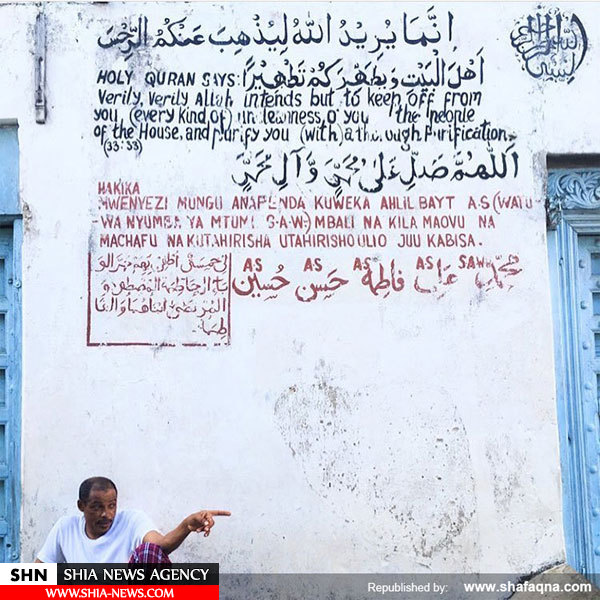 إنما يريد الله ليذهب عنكم الرجس
أهل البيت ويطهركم تطهيرا
HOLY QURAN SAYS:
Verily, Verily Allah intends but to keep off from
you, (every kind of) uncleanness, o' you the people
of the House, and purify you (with) a thorough Purification.
(33:33)
اللهم صل على محمد وآل محمد
HAKIKA
MWENYEZI MUNGU ANAPENDA KUWEKA AHLIL BAYT A.S (WATU
WA NYUMBA YA MTUMI S.A.W.) MBALI NA KILA MAOVU NA
MACHAFU NA KUTAHIRISHA UTAHIRISHO ULIO JUU KABISA.
AS AS AS AS SAW
محمد علي فاطمة حسن حسين
لي خمسة أطفي بهم حر الو
باء الحاطمة المصطفى و
المرتضى ابناهما و الفا
طمة
SHN SHIA NEWS AGENCY
WWW.SHIA-NEWS.COM
Republished by: www.shafaqna.com